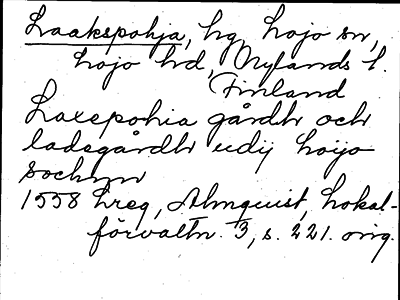 Laakspohja, hg, Lojo sn,
Lojo hd, Nylands l.
(Finland
Laxepohia gårdh och
ladegårdh udij Loijo
Sochnn
1558 Lreg, Almquist, Lokal-
förvaltn. 3, s. 221. orig.